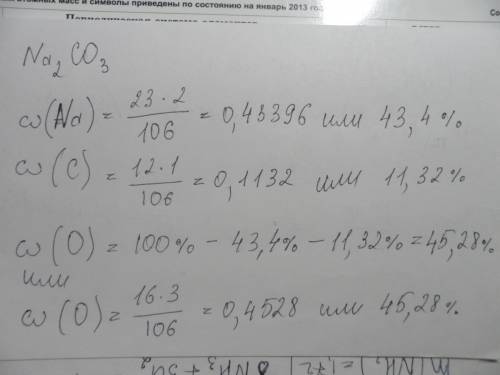 атомных масс и символы приведены по состоянию на январь 2013 год
Периодическая система элементов
Na₂CO₃
ω(Na) = 23·2/106 = 0,43396 или 43,4%
ω(C) = 12·1/106 = 0,1132 или 11,32%
ω(O) = 100% - 43,4% - 11,32% = 45,28%
или
ω(O) = 16·3/106 = 0,4528 или 45,28%